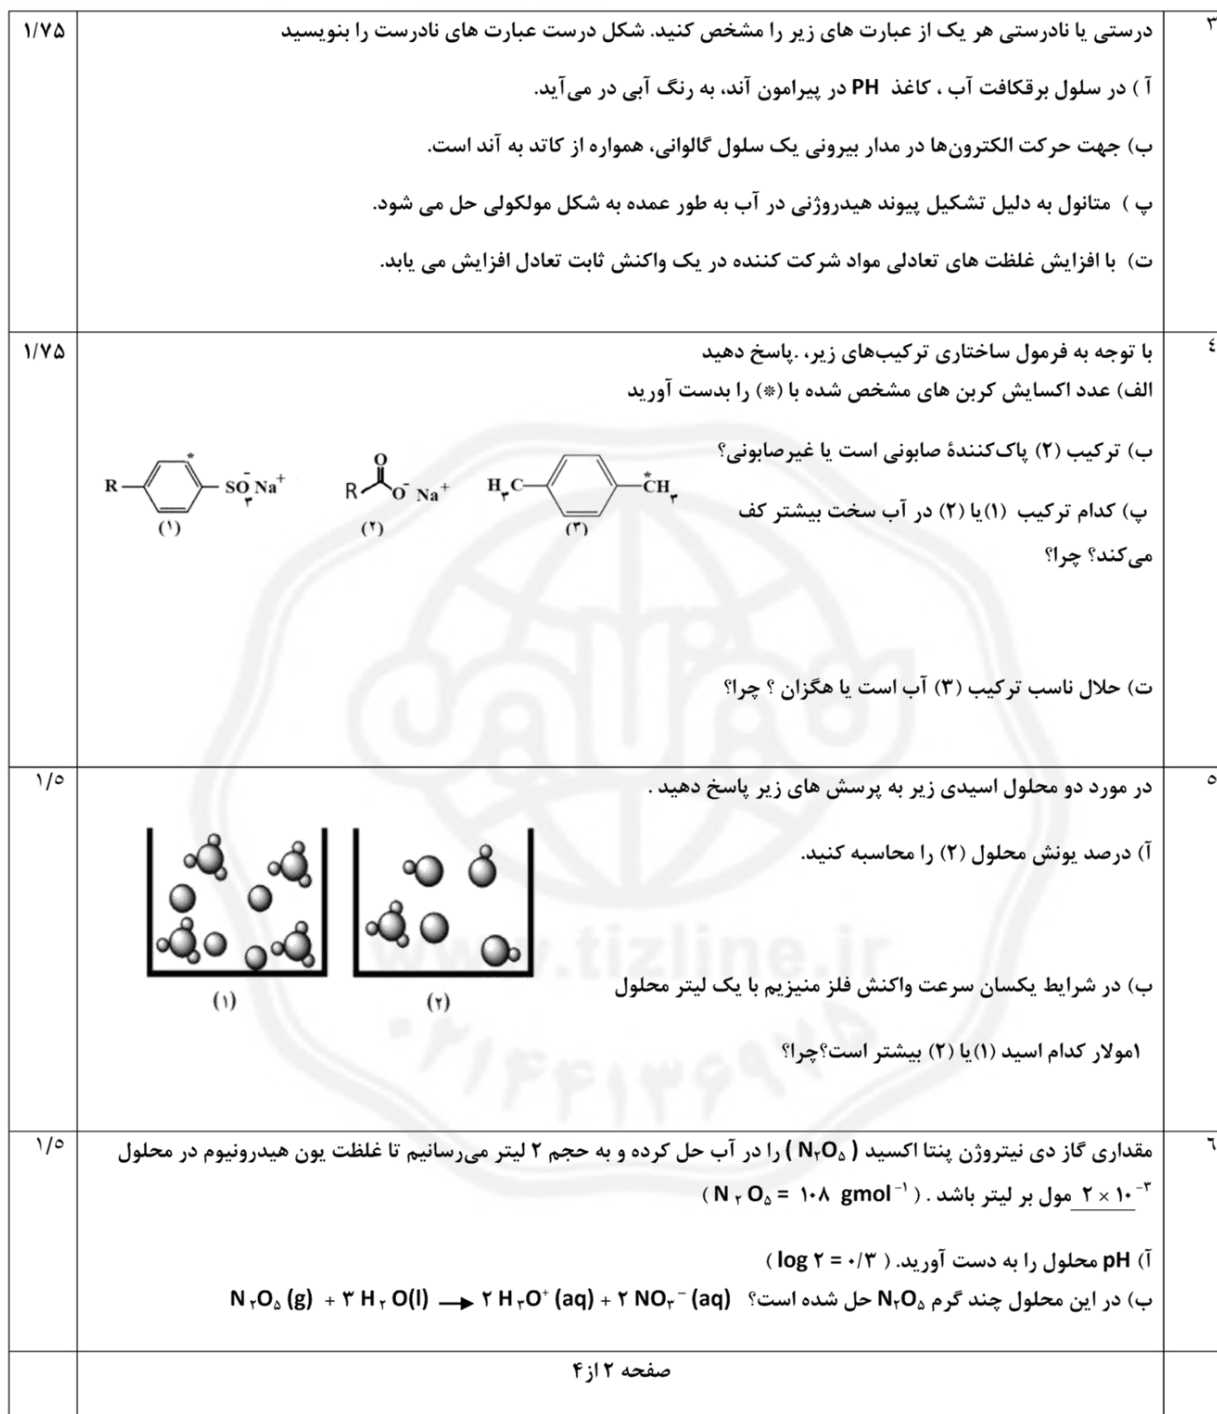 ۳ درستی یا نادرستی هر یک از عبارت های زیر را مشخص کنید. شکل درست عبارت های نادرست را بنویسید ۱/۷۵
آ ) در سلول برقکافت آب ، کاغذ PH در پیرامون آند، به رنگ آبی در می‌آید.
ب) جهت حرکت الکترون‌ها در مدار بیرونی یک سلول گالوانی، همواره از کاتد به آند است.
پ ) متانول به دلیل تشکیل پیوند هیدروژنی در آب به طور عمده به شکل مولکولی حل می شود.
ت) با افزایش غلظت های تعادلی مواد شرکت کننده در یک واکنش ثابت تعادل افزایش می یابد.
٤ با توجه به فرمول ساختاری ترکیب‌های زیر، .پاسخ دهید ۱/۷۵
الف) عدد اکسایش کربن های مشخص شده با (*) را بدست آورید
ب) ترکیب (۲) پاک‌کنندهٔ صابونی است یا غیرصابونی؟
R * SO₃⁻ Na⁺ (۱)
R O O⁻ Na⁺ (۲)
H₃C *CH₃ (۳)
پ) کدام ترکیب (۱)یا (۲) در آب سخت بیشتر کف
می‌کند؟ چرا؟
ت) حلال ناسب ترکیب (۳) آب است یا هگزان ؟ چرا؟
٥ در مورد دو محلول اسیدی زیر به پرسش های زیر پاسخ دهید . ۱/٥
آ) درصد یونش محلول (۲) را محاسبه کنید.
(۱) (۲)
ب) در شرایط یکسان سرعت واکنش فلز منیزیم با یک لیتر محلول
۱مولار کدام اسید (۱)یا (۲) بیشتر است؟چرا؟
www.tizline.ir
۰۲۱۴۴۱۳۶۹۷۵
٦ مقداری گاز دی نیتروژن پنتا اکسید ( N₂O₅ ) را در آب حل کرده و به حجم ۲ لیتر می‌رسانیم تا غلظت یون هیدرونیوم در محلول ۱/٥
۲ × ۱۰⁻³ مول بر لیتر باشد . ( N ₂ O₅ = ۱۰۸ gmol⁻¹ )
آ) pH محلول را به دست آورید. ( log ۲ = ۰/۳ )
ب) در این محلول چند گرم N₂O₅ حل شده است؟ N ₂O₅ (g) + ۳ H ₂ O(l) → ۲ H ₃O⁺ (aq) + ۲ NO₃⁻ (aq)
صفحه ۲ از۴